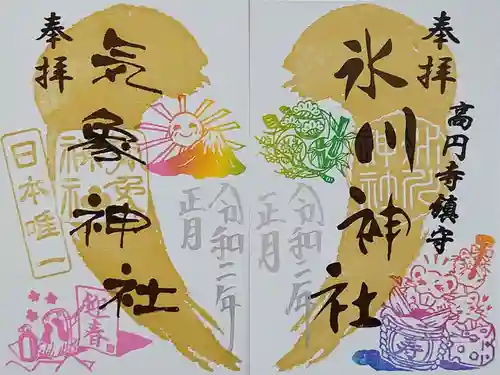 奉拝
氷川神社
高円寺鎮守
令和二年
正月
寿
奉拝
気象神社
日本唯一
令和二年
正月
迎春